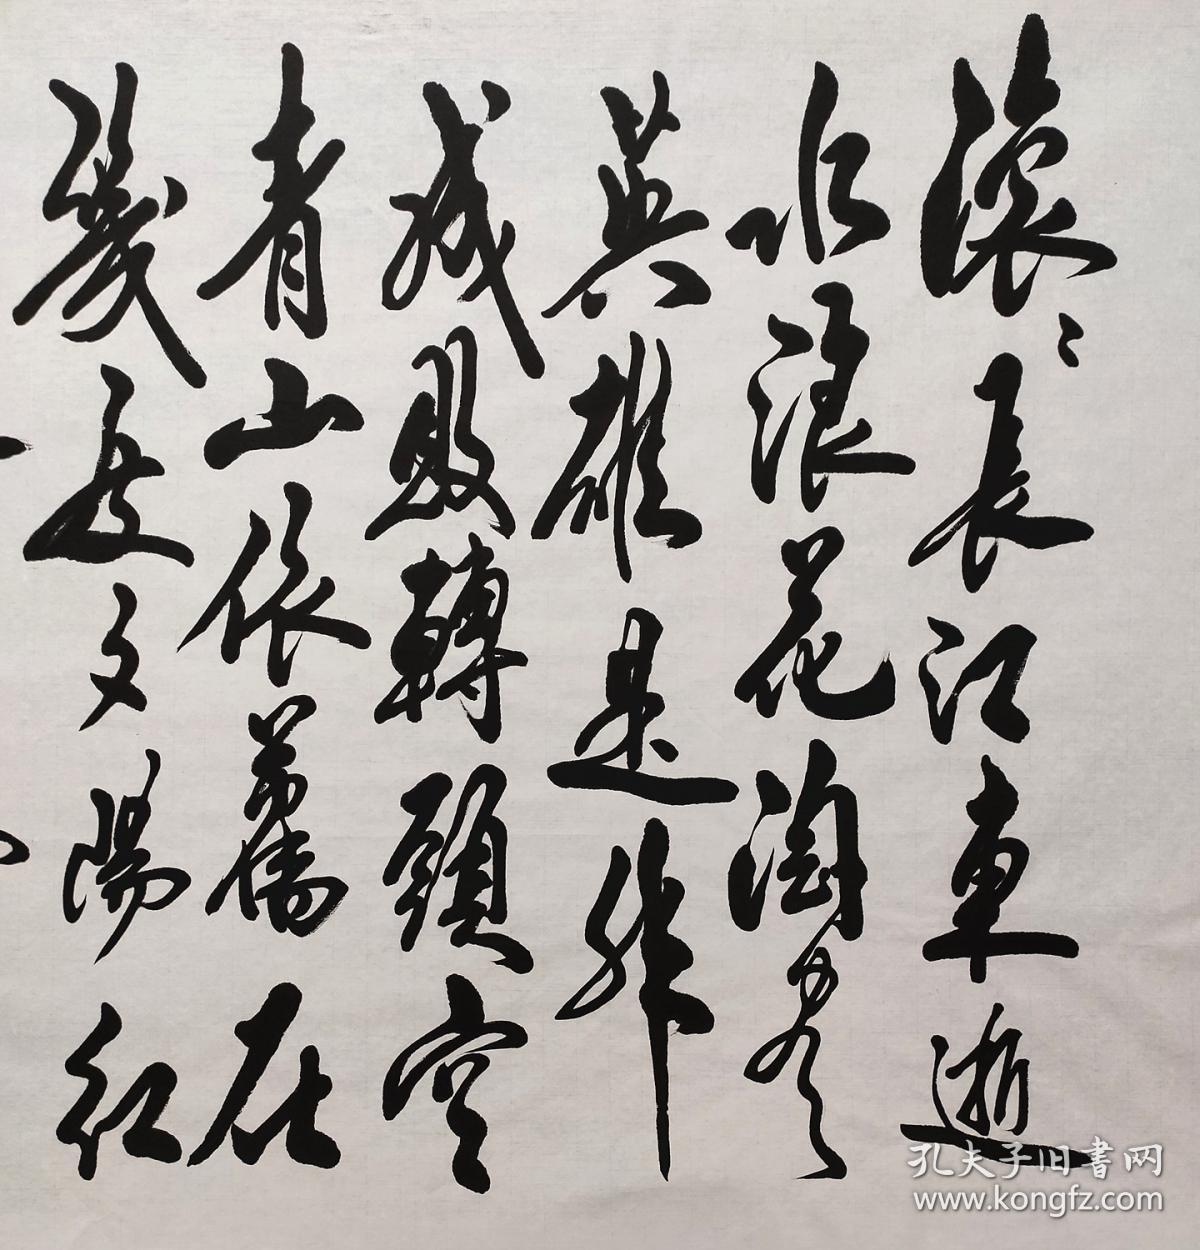 滾〻長江東逝
水浪花淘盡
英雄是非
成敗轉頭空
青山依舊在
幾度夕陽紅
孔夫子旧書网
www.kongfz.com